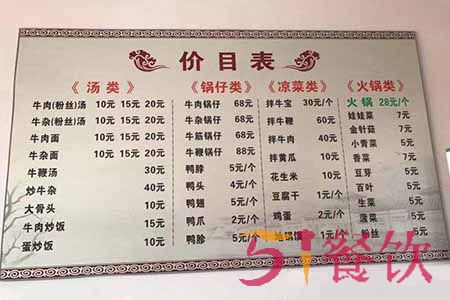 价目表
《汤类》
牛肉(粉丝)汤 10元 15元 20元
牛杂(粉丝)汤 10元 15元 20元
牛肉面 10元 15元 20元
牛杂面 10元 15元 20元
牛鞭汤 30元
炒牛杂 40元
大骨头 10元
牛肉炒饭 15元
蛋炒饭 10元
《锅仔类》
牛肉锅仔 68元
牛杂锅仔 68元
牛筋锅仔 68元
牛鞭锅仔 88元
鸭脖 5元/个
鸭头 4元/个
鸭翅 5元/个
鸭爪 2元/个
鸭胗 5元/个
《凉菜类》
拌牛宝 30元/个
拌牛鞭 60元
拌牛肉 40元
拌黄瓜 10元
花生米 10元
豆腐干 1元/个
鸡蛋 2元/个
地锅馍 1元/个
《火锅类》
火锅 28元/个
娃娃菜 7元
金针菇 7元
小青菜 5元
香菜 7元
豆芽 5元
百叶 5元
生菜 5元
菠菜 5元
粉丝 5元
51餐饮